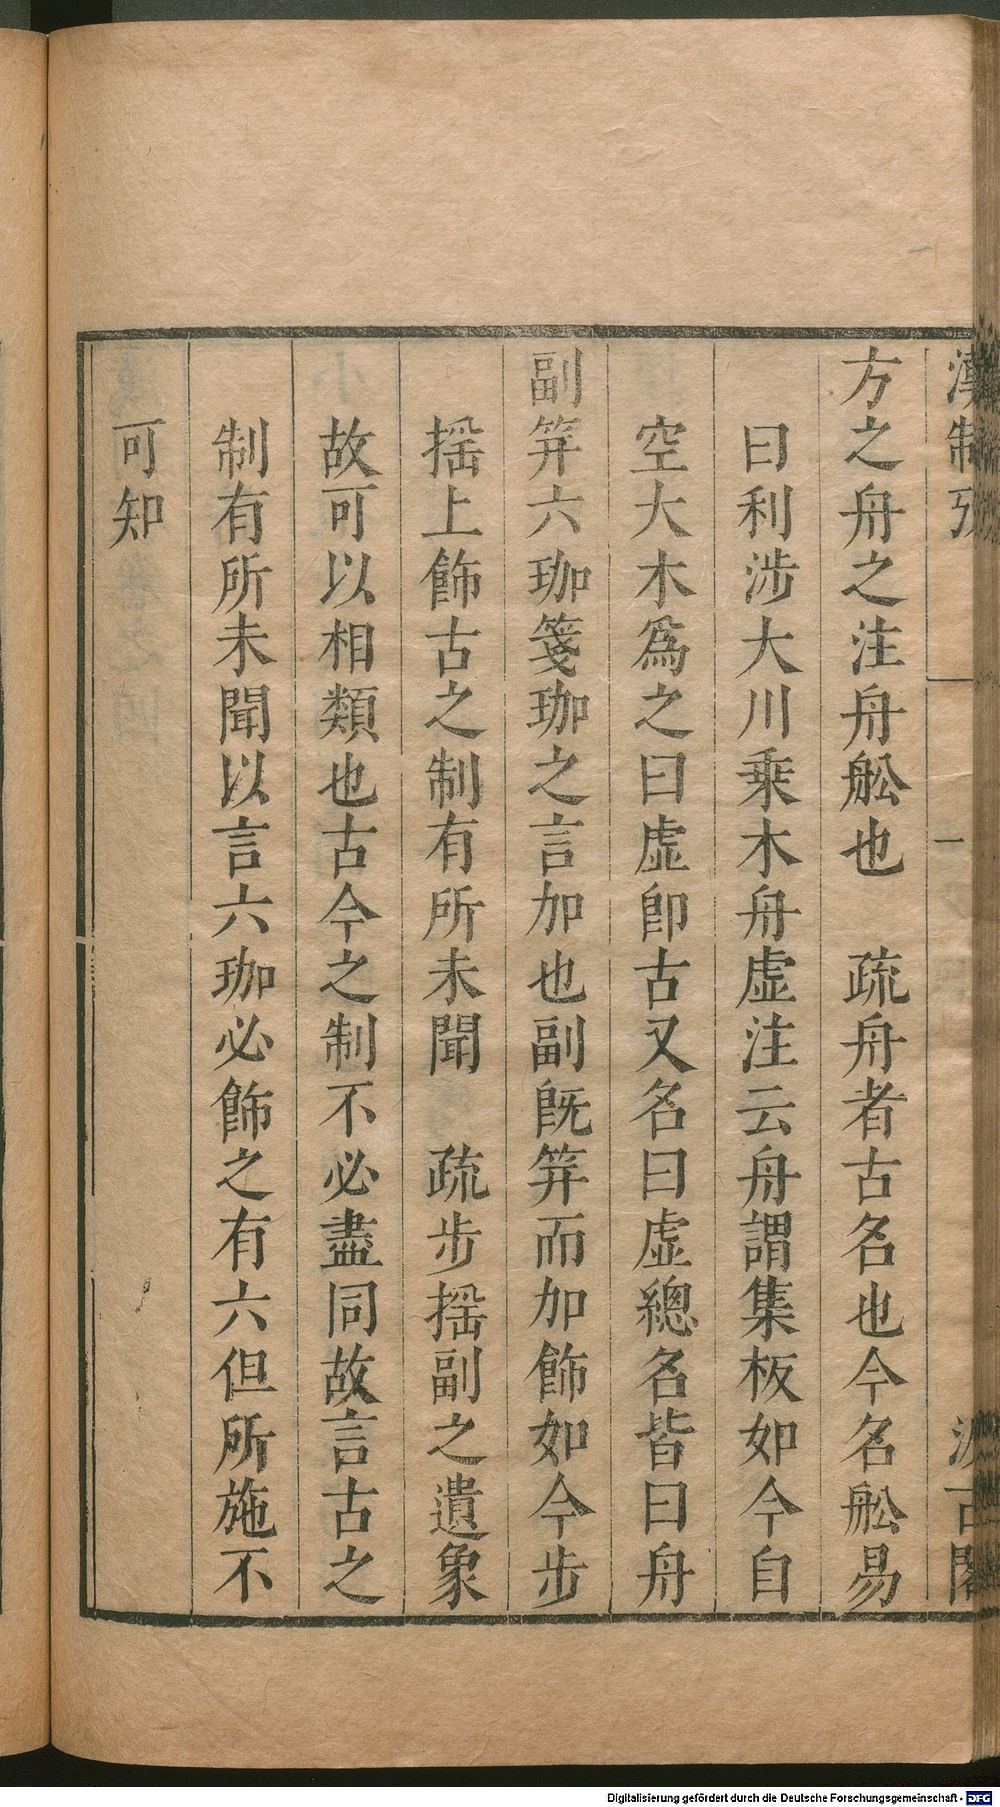 漢制攷
一
汲古閣
方之舟之注舟舩也　疏舟者古名也今名舩易
曰利涉大川乗木舟虛注云舟謂集板如今自
空大木爲之曰虛卽古又名曰虛總名皆曰舟
副筓六珈箋珈之言加也副旣筓而加飾如今步
揺上飾古之制有所未聞　疏步揺副之遺象
故可以相類也古今之制不必盡同故言古之
制有所未聞以言六珈必飾之有六但所施不
可知
Digitalisierung gefördert durch die Deutsche Forschungsgemeinschaft - DFG